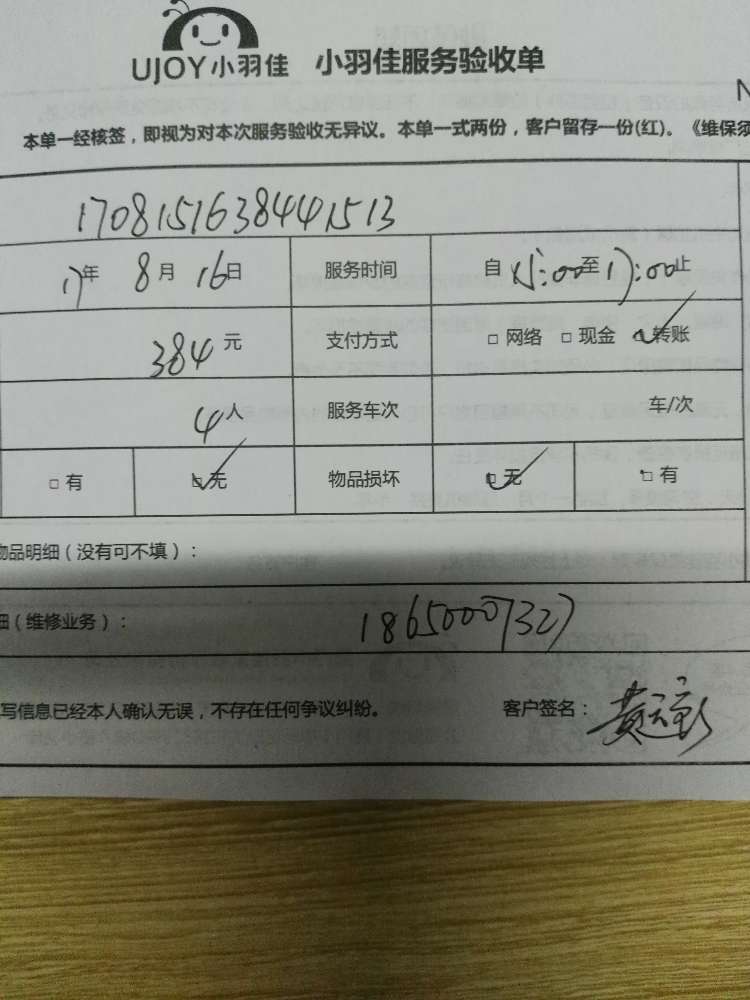 UJOY小羽佳 小羽佳服务验收单
N
本单一经核签，即视为对本次服务验收无异议。本单一式两份，客户留存一份(红)。《维保须
1708151638441513
17年 8月 16日 服务时间 自 15:00至17:00止
384元 支付方式 □ 网络 □ 现金 ☑ 转账
4人 服务车次 车/次
□ 有 ☑ 无 物品损坏 ☑ 无 □ 有
物品明细（没有可不填）：
细（维修业务）： 18650007327
写信息已经本人确认无误，不存在任何争议纠纷。 客户签名：黄